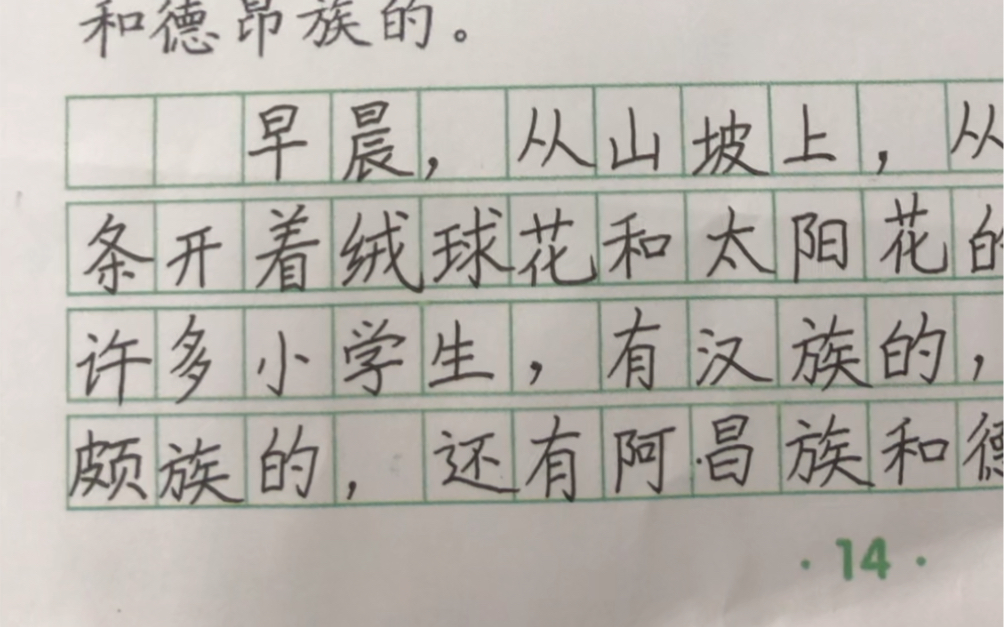 和德昂族的。
早晨，从山坡上，从
条开着绒球花和太阳花的
许多小学生，有汉族的，
颇族的，还有阿昌族和德
·14·